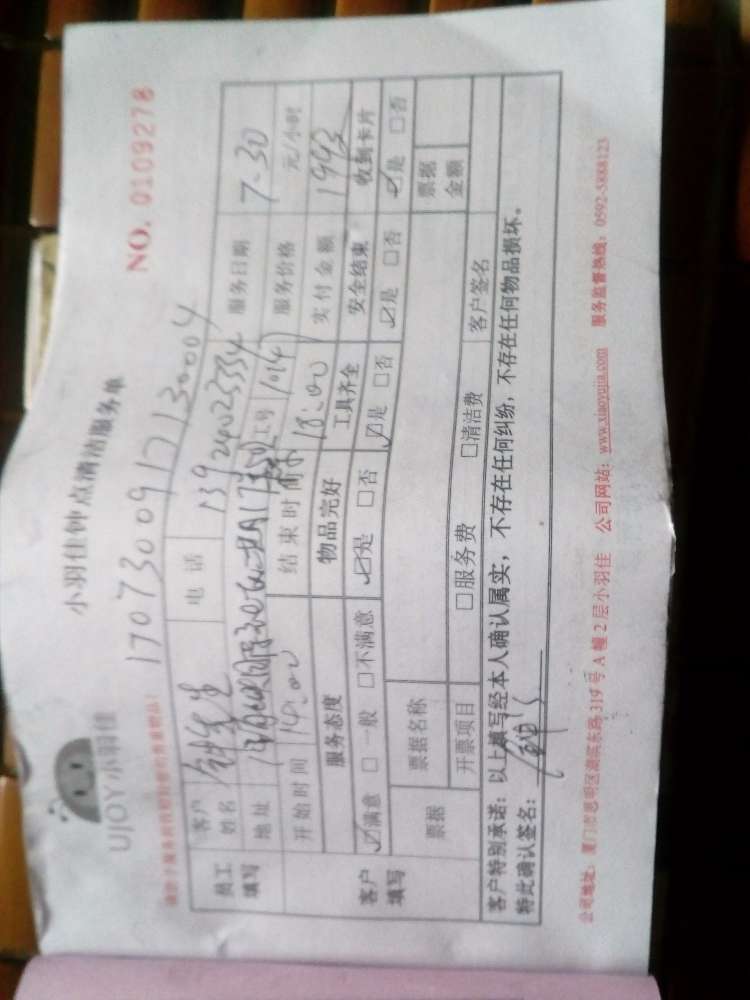 UJOY小羽佳
小羽佳钟点清洁服务单
NO. 0109278
17073000917130004
员工填写
客户姓名 钟先生 电话 13924023334 服务日期 7-30
地址 工号 1014 服务价格 元/小时
开始时间 14:00 结束时间 18:00 实付金额 1993
客户填写
服务态度 物品完好 工具齐全 安全结束 收到卡片
☑满意 □一般 □不满意 ☑是 □否 ☑是 □否 ☑是 □否 ☑是 □否
票据 票据名称 票据金额
开票项目 □服务费 □清洁费 客户签名
客户特别承诺：以上填写经本人确认属实，不存在任何纠纷，不存在任何物品损坏。
特此确认签名：
公司地址：厦门市思明区湖滨东路319号A幢2层小羽佳 公司网站：www.xiaoyujia.com 服务监督热线：0592-5888123